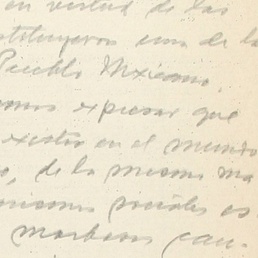 en virtud de las
tituyeron una de la
Pueblo Mexicano,
mos expresar que
existir en el mundo
o, de la misma ma
sociales es